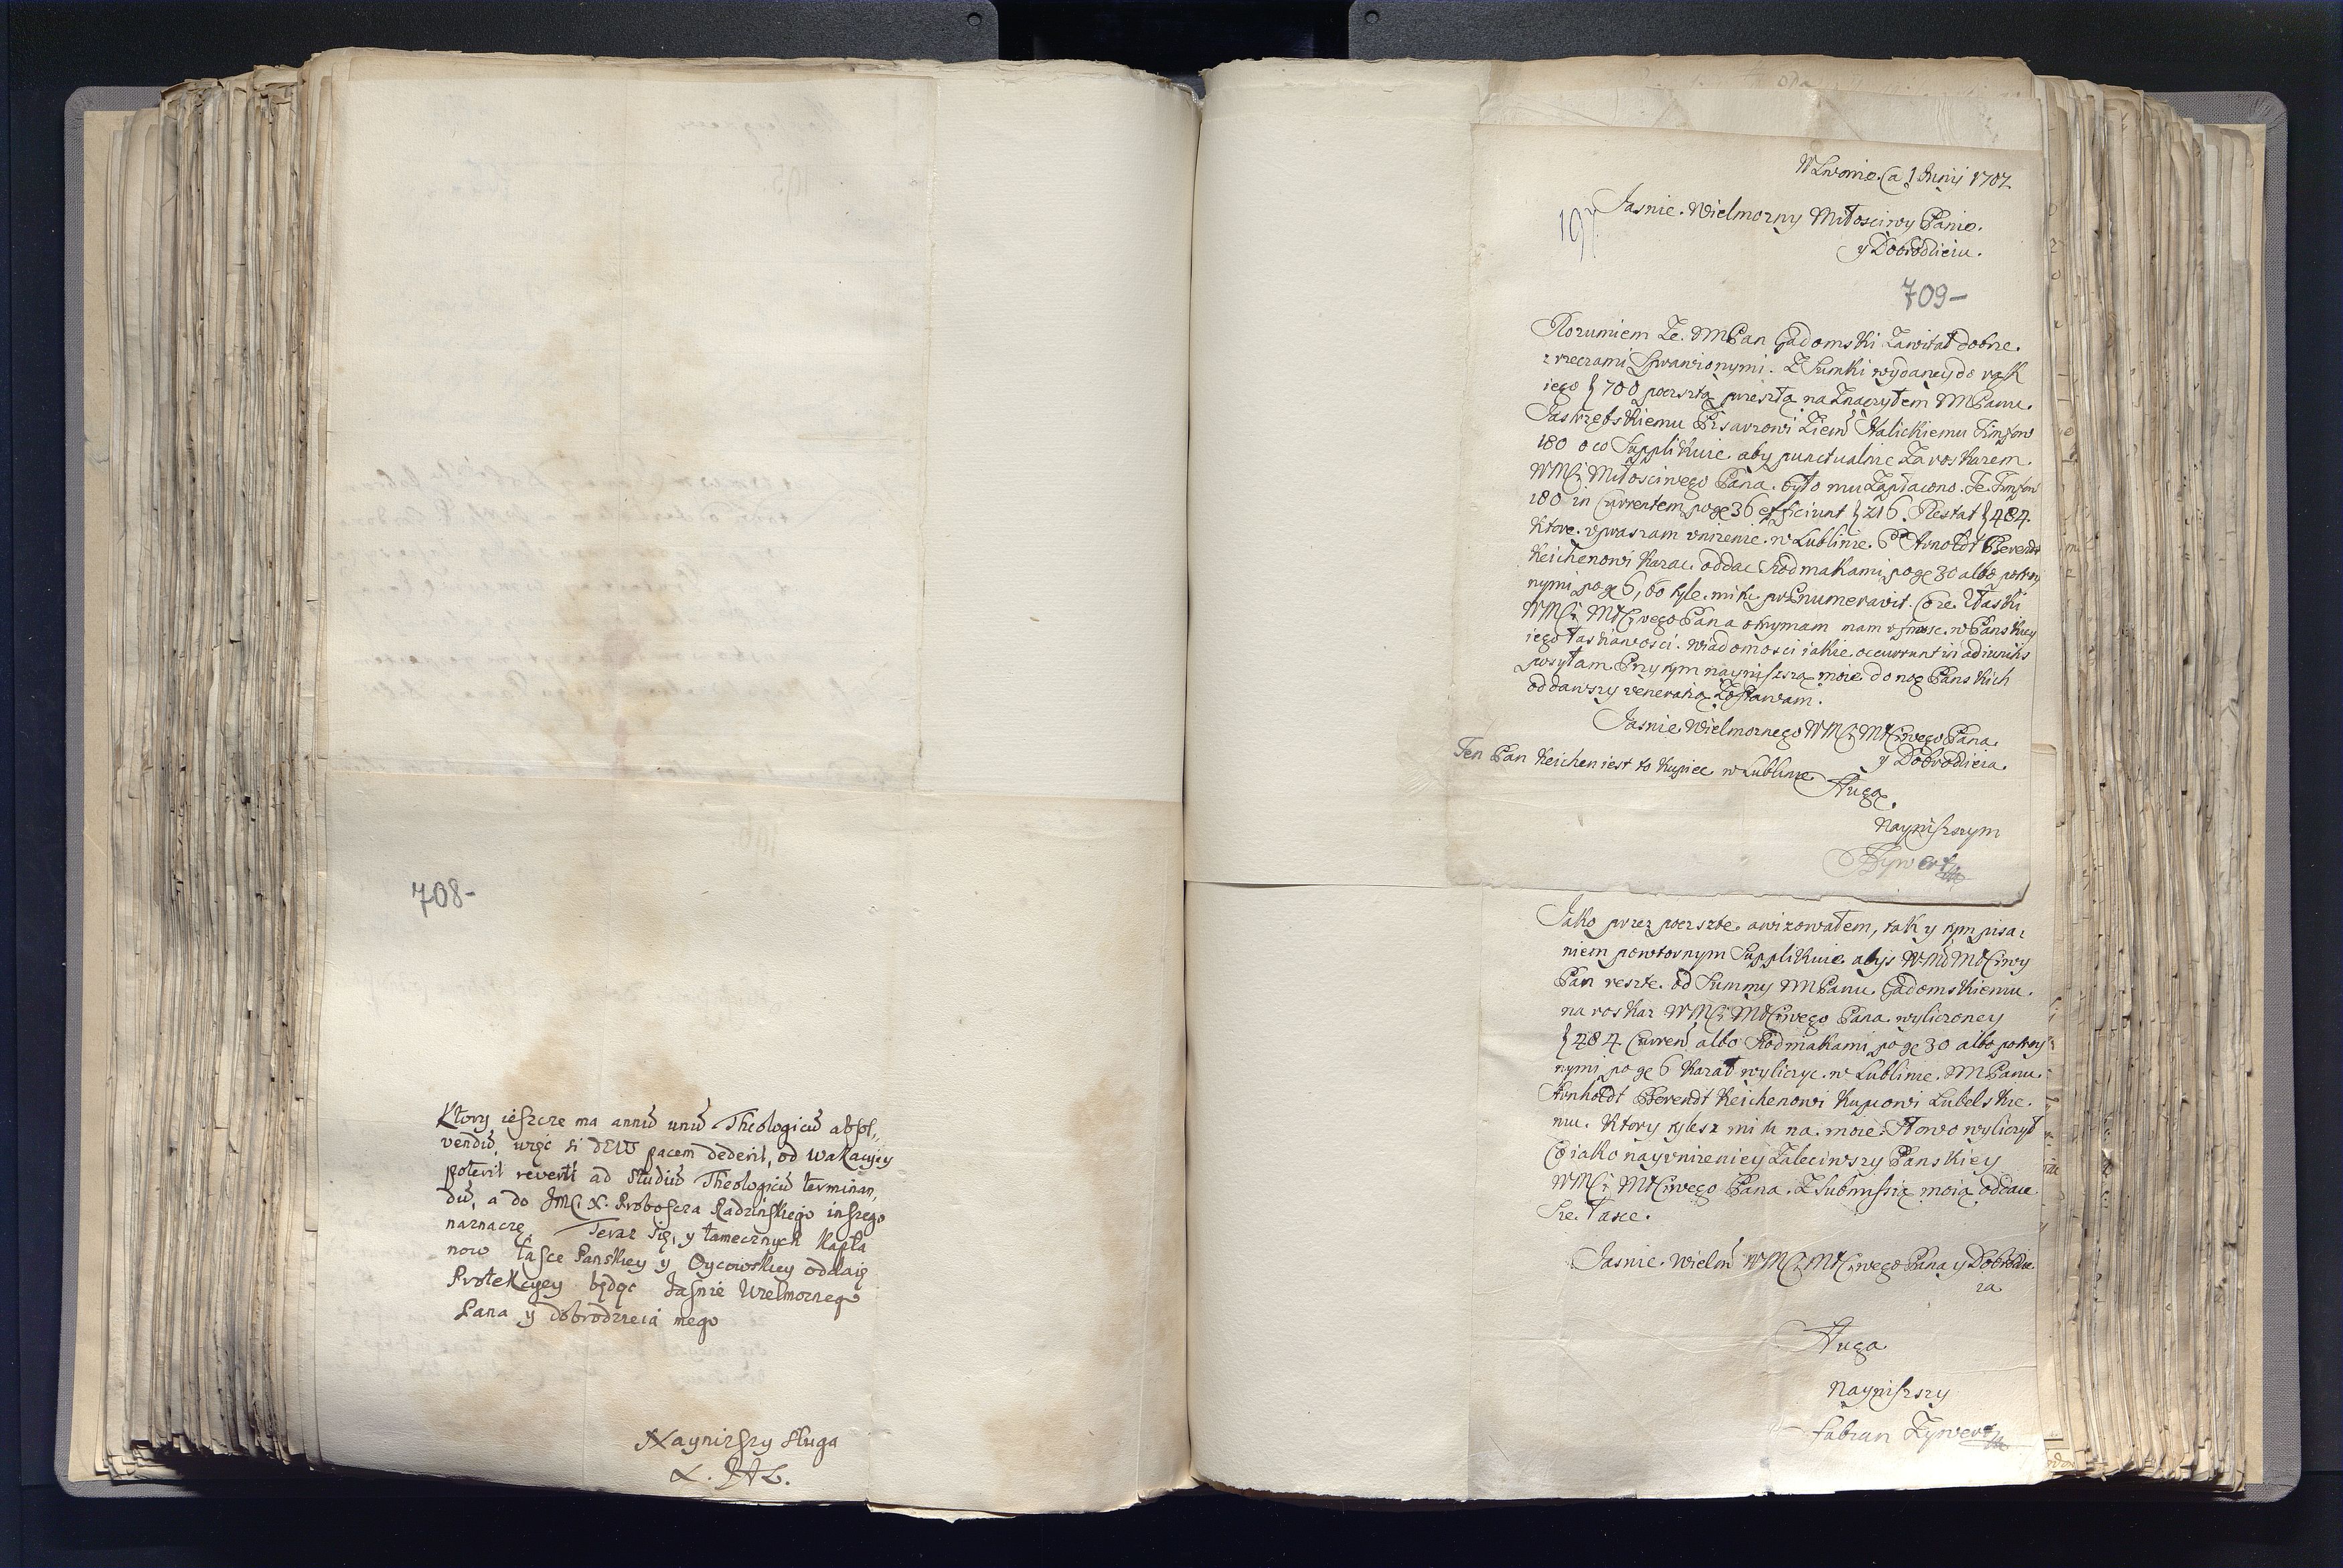 708-
Ktory ieszcze ma annū unū Theologicū absol,,
vendū, więc si DEUS pacem dederit, od Wakacyiey
poterit reverti ad Studiū Theologicū terminan,
dū, a do JMCi X. Proboszcza Radzinskiego inszego
naznaczę. Teraz Się, y tamecznych Kapła
now łasce Panskiey y Oycowskiey oddaię
Protekcyey będąc Jasnie Wielmożnego
Pana y dobrodzieia mego
Nayniższy sługa
W Lwowie (a 1 Junij 1702
197.
Jasnie Wielmozny Miłosciwy Panie
y Dobrodzieiu.
709-
Rozumiem Ze. MPan Gadomski Zawitał dobrze.
z rzeczami Sprawionymi. Z Sumki wydaney do rąk
iego 700 poczsztą przeszłą naznaczyłem MPanu.
Jastrzębskiemu Pisarzowi Ziem Halickiemu Tinfow
180 o co Supplikuie aby punctualnie Za roskazem.
WMCi Miłosciwego Pana. było mu Zapłacono. Te Tinfow
180 in Currentem po gr 36 efficiunt 216. Restat 484.
Ktore. upraszam unizenie. w Lublinie. Arnoldt Berendt
Reichenowi kazac. oddac
nymi po gr 6, bo tyle. mihi prænumeravit. Co ze. łaski
WMCi Pana otrzymam mam ufnosc. w Panskiey
iego łaskawosci. wiadomosci iakie. occurrunt in adiunctis
posyłam. Przytym nayniszszą moie do nog Panskich
oddawszy veneratią Zostawam.
Jasnie Wielmoznego WMCi Pana.
y Dobrodzieia.
Ten Pan Reichen iest to kupiec w Lublinie
Sługą.
Nayniszszym
Zywert
Jako przez poczszte. awizowałem, tak y tym pisa:
niem powtornym Supplikuie abys
Pan reszte. od Summy MPanu. Gadomskiemu.
na roskaz WMCi Pana. wyliczoney
484 Curren albo po gr 30 albo
nymi po gr 6 kazał wyliczyc. w Lublinie. MPanu.
Arnholdt Berendt Reichenowi kupcowi Lubelskie.
mu. Ktory tylesz mi tu na. moie. słowo wyliczył
Co iako nayunizeniey Zaleciwszy Panskiey
WMCi Pana. Z Submissią moią oddaie
Sie. łasce.
Jasnie. Wielm WMCi Pana y Dobrodzie
ia
Sługa
Nayniszszy
Fabian Zywert